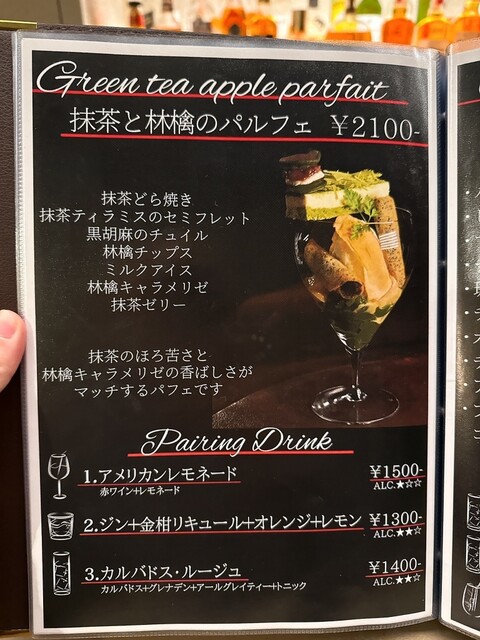 Green tea apple parfait
抹茶と林檎のパルフェ ￥2100-
抹茶どら焼き
抹茶ティラミスのセミフレット
黒胡麻のチュイル
林檎チップス
ミルクアイス
林檎キャラメリゼ
抹茶ゼリー
抹茶のほろ苦さと
林檎キャラメリゼの香ばしさが
マッチするパフェです
Pairing Drink
1.アメリカンレモネード ￥1500-
赤ワイン+レモネード ALC.★☆☆
2.ジン+金柑リキュール+オレンジ+レモン ￥1300-
ALC.★★☆
3.カルバドス・ルージュ ￥1400-
カルバドス+グレナデン+アールグレイティー+トニック ALC.★★☆